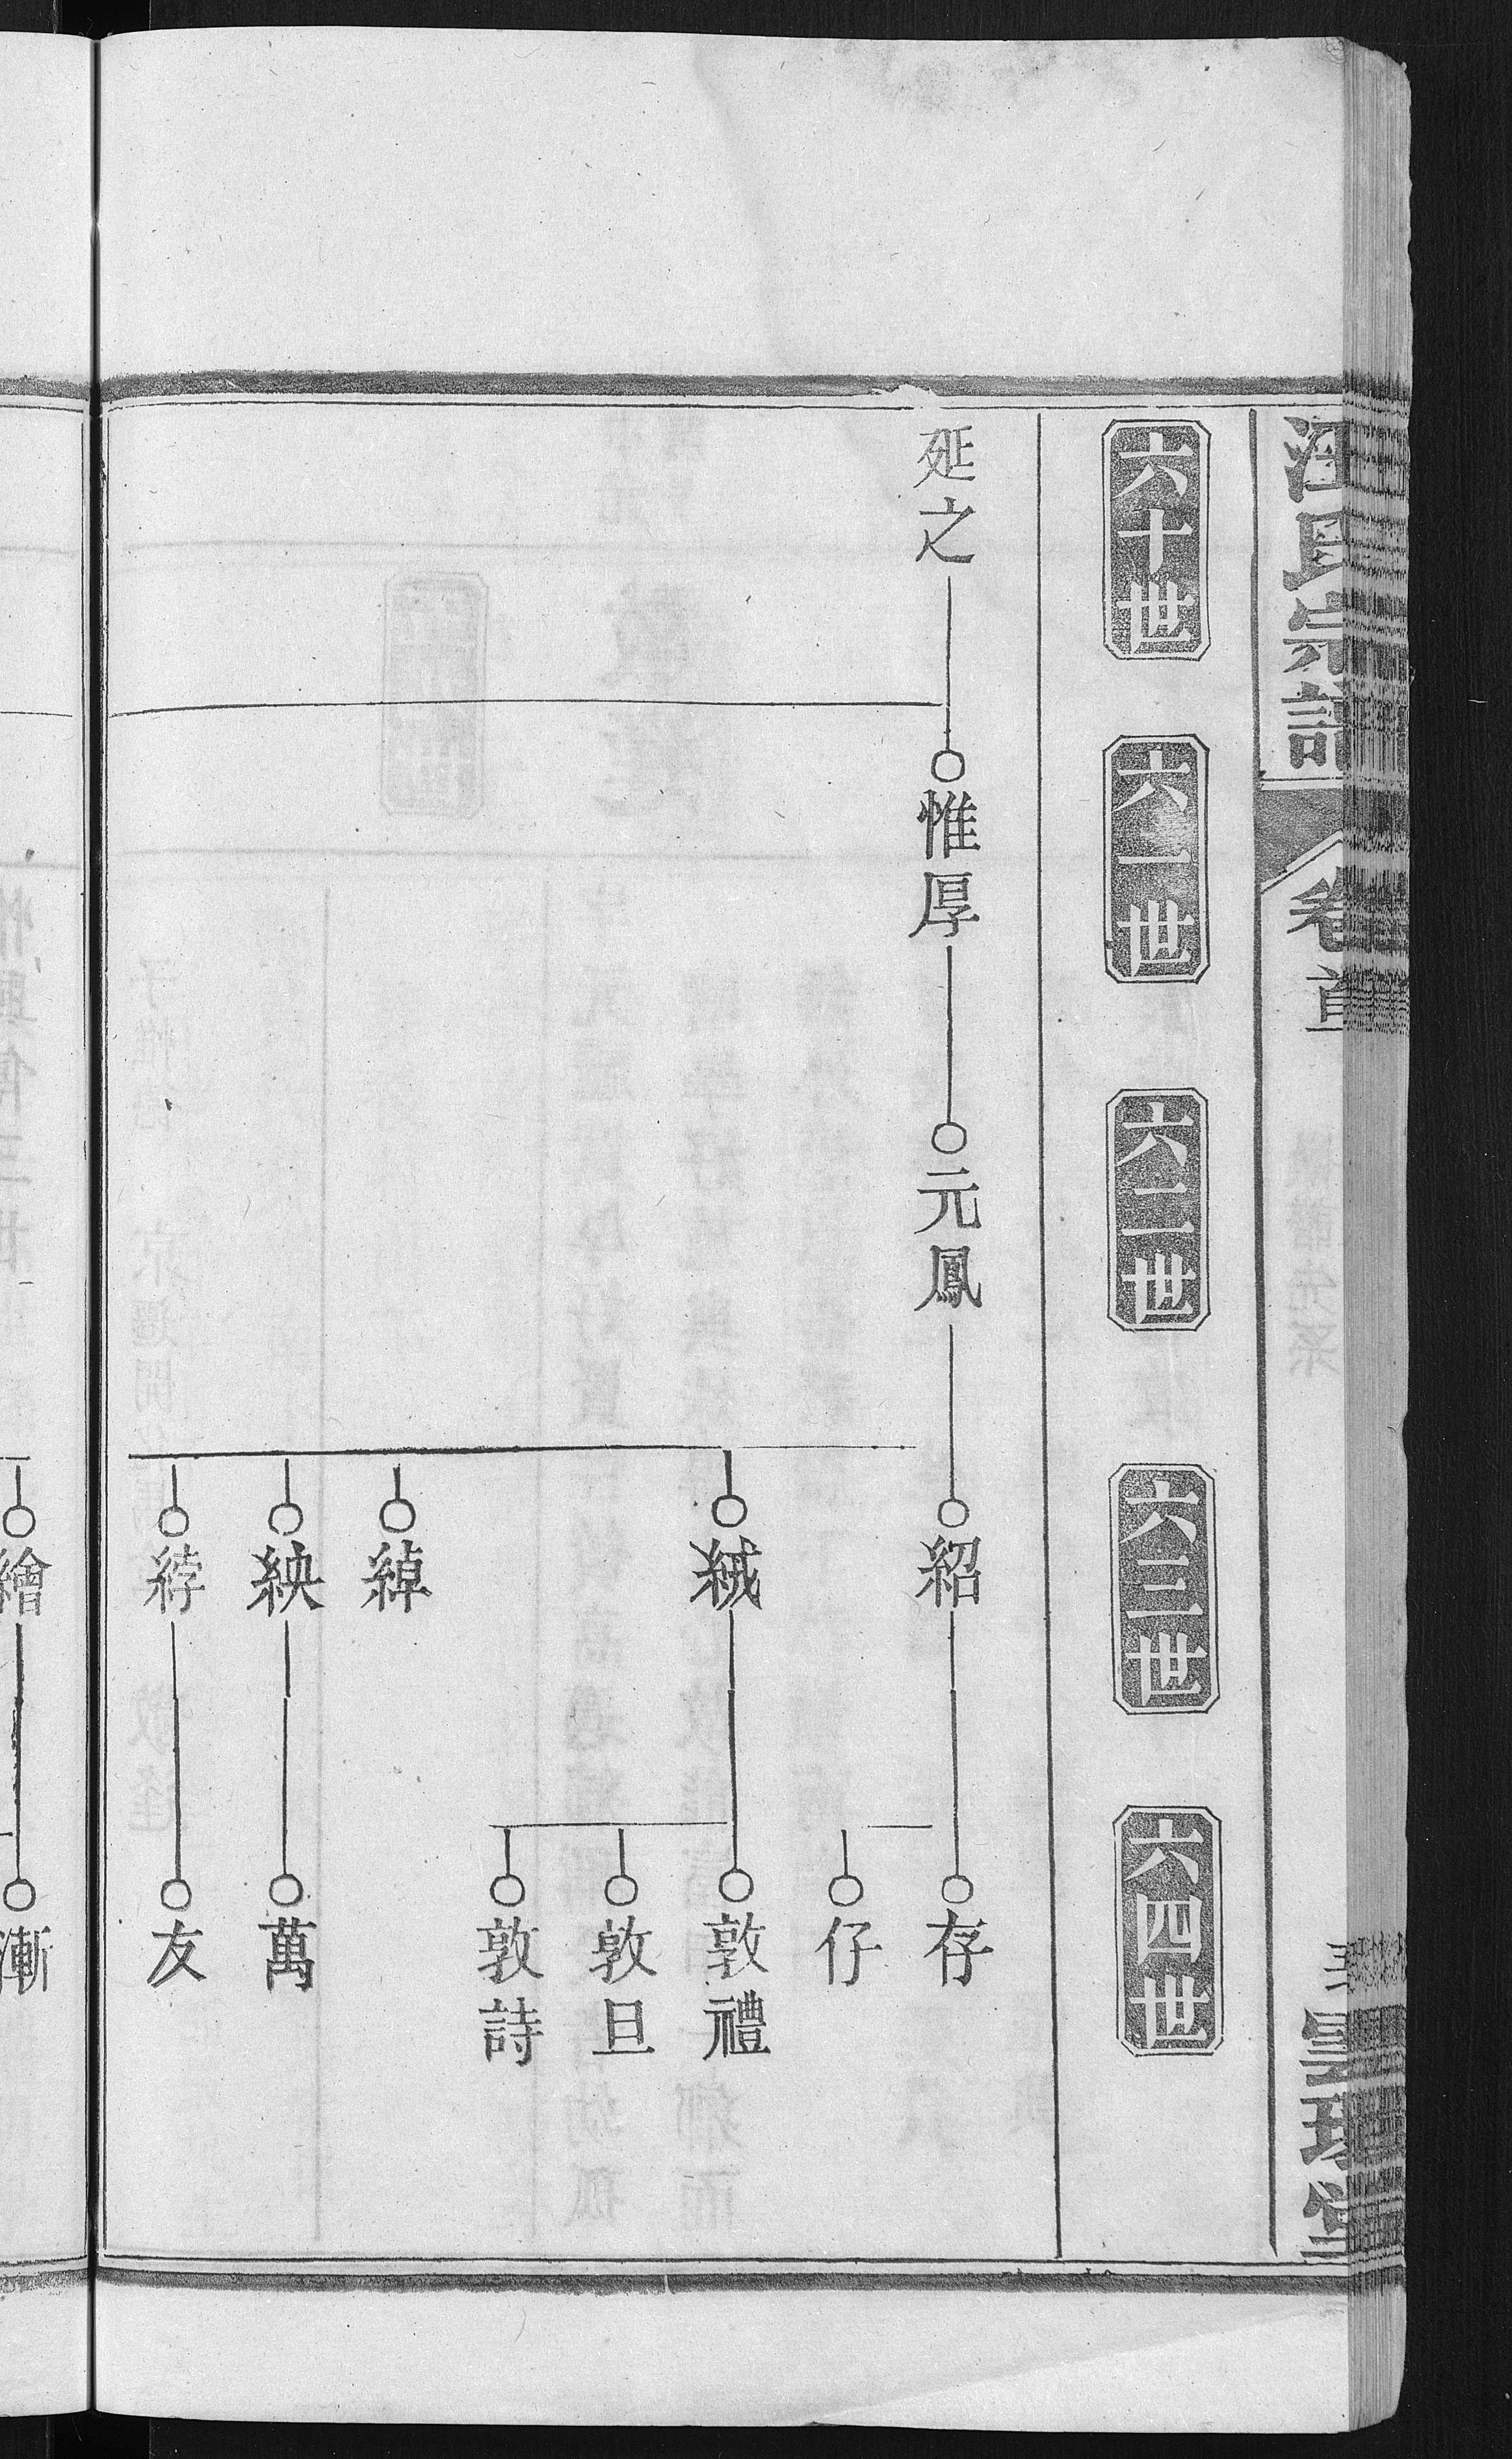 汪氏宗譜
卷首
六十世
六一世
六二世
六三世
六四世
延之
惟厚
元鳳
紹
存
仔
絨
敦禮
敦旦
敦詩
綽
紻
萬
綍
友
繪
漸